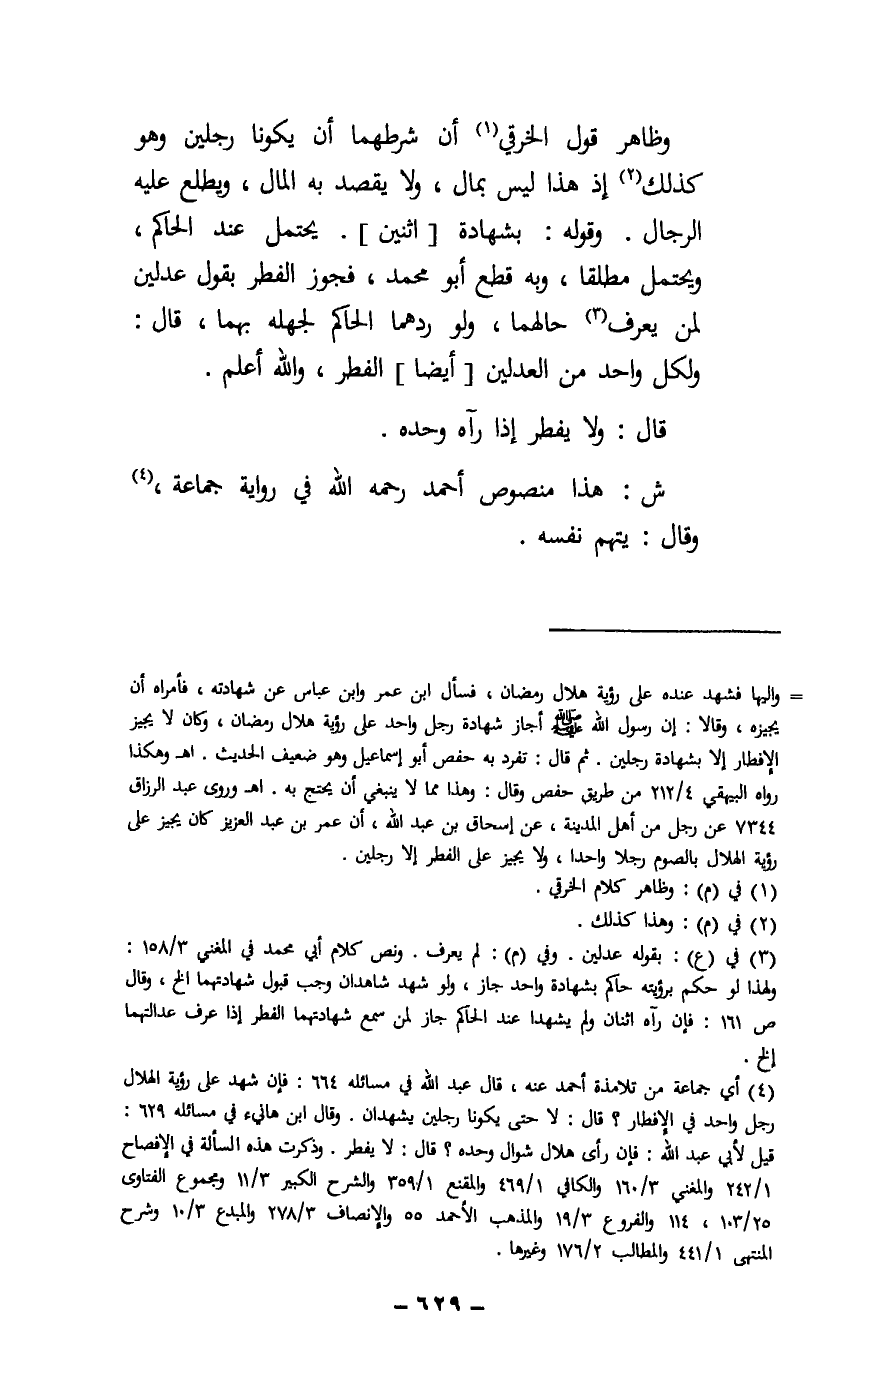 وظاهر قول الخرقي(١) أن شرطهما أن يكونا رجلين وهو
كذلك(٢) إذ هذا ليس بمال ، ولا يقصد به المال ، ويطلع عليه
الرجال . وقوله : بشهادة [ اثنين ] . يحتمل عند الحاكم ،
ويحتمل مطلقا ، وبه قطع أبو محمد ، فجوز الفطر بقول عدلين
لمن يعرف(٣) حالهما ، ولو ردهما الحاكم لجهله بهما ، قال :
ولكل واحد من العدلين [ أيضا ] الفطر ، والله أعلم .
قال : ولا يفطر إذا رآه وحده .
ش : هذا منصوص أحمد رحمه الله في رواية جماعة ،(٤)
وقال : يتهم نفسه .
= واليها فشهد عنده على رؤية هلال رمضان ، فسأل ابن عمر وابن عباس عن شهادته ، فأمراه أن
يجيزه ، وقالا : إن رسول الله ﷺ أجاز شهادة رجل واحد على رؤية هلال رمضان ، وكان لا يجيز
الإفطار إلا بشهادة رجلين . ثم قال : تفرد به حفص أبو إسماعيل وهو ضعيف الحديث . اهـ وهكذا
رواه البيهقي ٢١٢/٤ من طريق حفص وقال : وهذا مما لا ينبغي أن يحتج به . اهـ وروى عبد الرزاق
٧٣٤٤ عن رجل من أهل المدينة ، عن إسحاق بن عبد الله ، أن عمر بن عبد العزيز كان يجيز على
رؤية الهلال بالصوم رجلا واحدا ، ولا يجيز على الفطر إلا رجلين .
(١) في (م) : وظاهر كلام الخرقي .
(٢) في (م) : وهذا كذلك .
(٣) في (ع) : بقوله عدلين . وفي (م) : لم يعرف . ونص كلام أبي محمد في المغني ١٥٨/٣ :
ولهذا لو حكم برؤيته حاكم بشهادة واحد جاز ، ولو شهد شاهدان وجب قبول شهادتهما الخ ، وقال
ص ١٦١ : فإن رآه اثنان ولم يشهدا عند الحاكم جاز لمن سمع شهادتهما الفطر إذا عرف عدالتهما
الخ .
(٤) أي جماعة من تلامذة أحمد عنه ، قال عبد الله في مسائله ٦٦٤ : فإن شهد على رؤية الهلال
رجل واحد في الإفطار ؟ قال : لا حتى يكونا رجلين يشهدان . وقال ابن هانيء في مسائله ٦٢٩ :
قيل لأبي عبد الله : فإن رأى هلال شوال وحده ؟ قال : لا يفطر . وذكرت هذه المسألة في الإفصاح
٢٤٢/١ والمغني ١٦٠/٣ والكافي ٤٦٩/١ والمقنع ٣٥٩/١ والشرح الكبير ١١/٣ ومجموع الفتاوى
١٠٣/٢٥ ، ١١٤ والفروع ١٩/٣ والمذهب الأحمد ٥٥ والإنصاف ٢٧٨/٣ والمبدع ١٠/٣ وشرح
المنتهى ٤٤١/١ والمطالب ١٧٦/٢ وغيرها .
– ٦٢٩ –